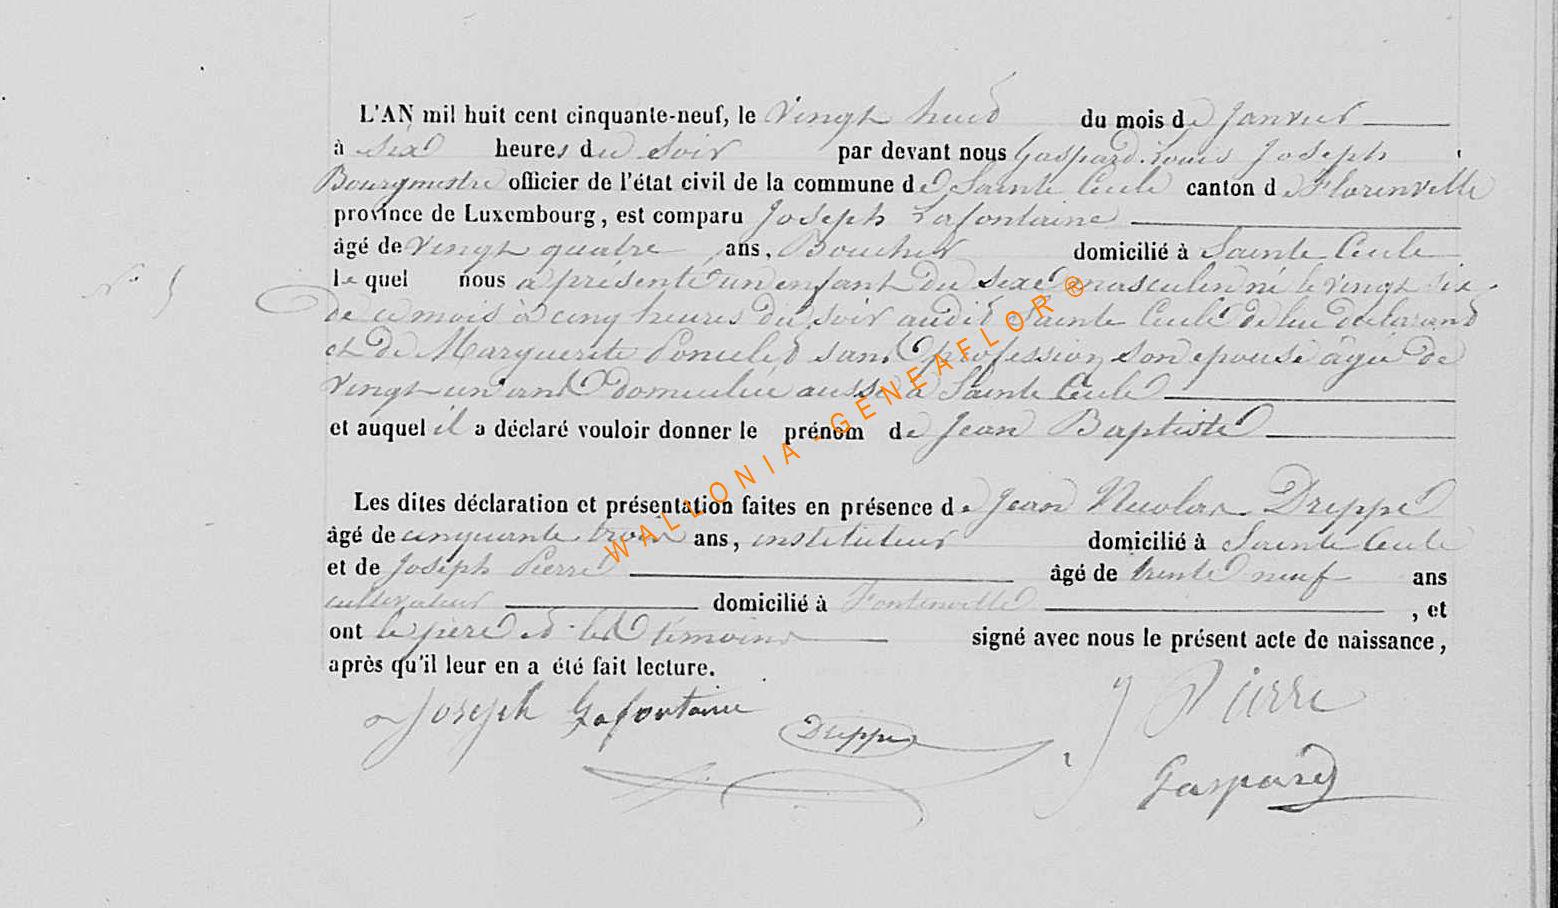 L'AN mil huit cent cinquante-neuf, le vingt huit du mois de Janvier
à six heures du soir par devant nous Gaspard Louis Joseph
Bourgmestre officier de l'état civil de la commune de Sainte Cecile canton de Florenville
province de Luxembourg, est comparu Joseph Lafontaine
âgé de vingt quatre ans, Boucher domicilié à Sainte Cecile
N° 5 le quel nous a présenté un enfant du sexe masculin né le vingt six
de ce mois à cinq heures du soir audit Sainte Cecile de lui déclarant
et de Marguerite Poncelet sans profession son epouse âgée de
vingt un ans domiciliée aussi à Sainte Cecile
et auquel il a déclaré vouloir donner le prénom de Jean Baptiste
Les dites déclaration et présentation faites en présence de Jean Nicolas Dreppe
âgé de cinquante trois ans, instituteur domicilié à Sainte Cecile
et de Joseph Pierre âgé de trente neuf ans
cultivateur domicilié à Fontenoille, et
ont le père et les témoins signé avec nous le présent acte de naissance,
après qu'il leur en a été fait lecture.
Joseph Lafontaine Dreppe J Pierre
Gaspard
WALLONIA-GENEAFLOR®